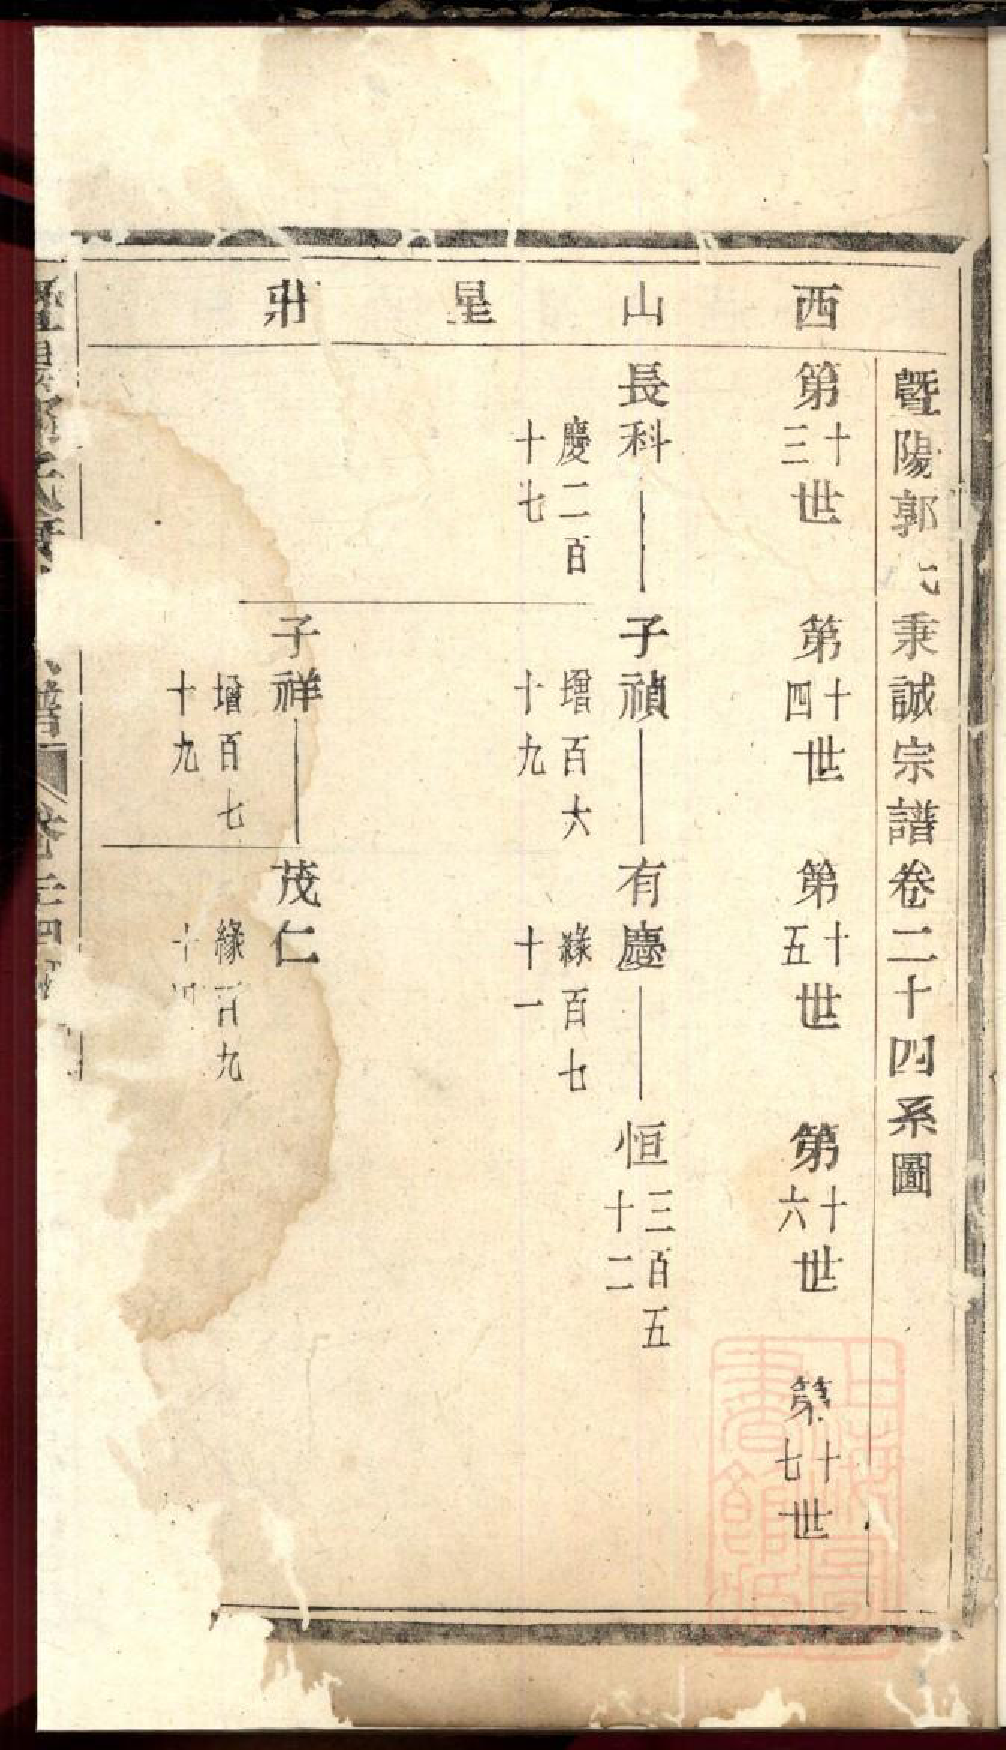 西山星莊
暨陽郭氏秉誠宗譜卷二十四系圖
第十三世
第十四世
第十五世
第十六世
第十七世
長科
慶二百
十七
子禎
增百六
十九
有慶
緣百七
十一
恒
三百五
十二
子祥
增百七
十九
茂仁
緣百九